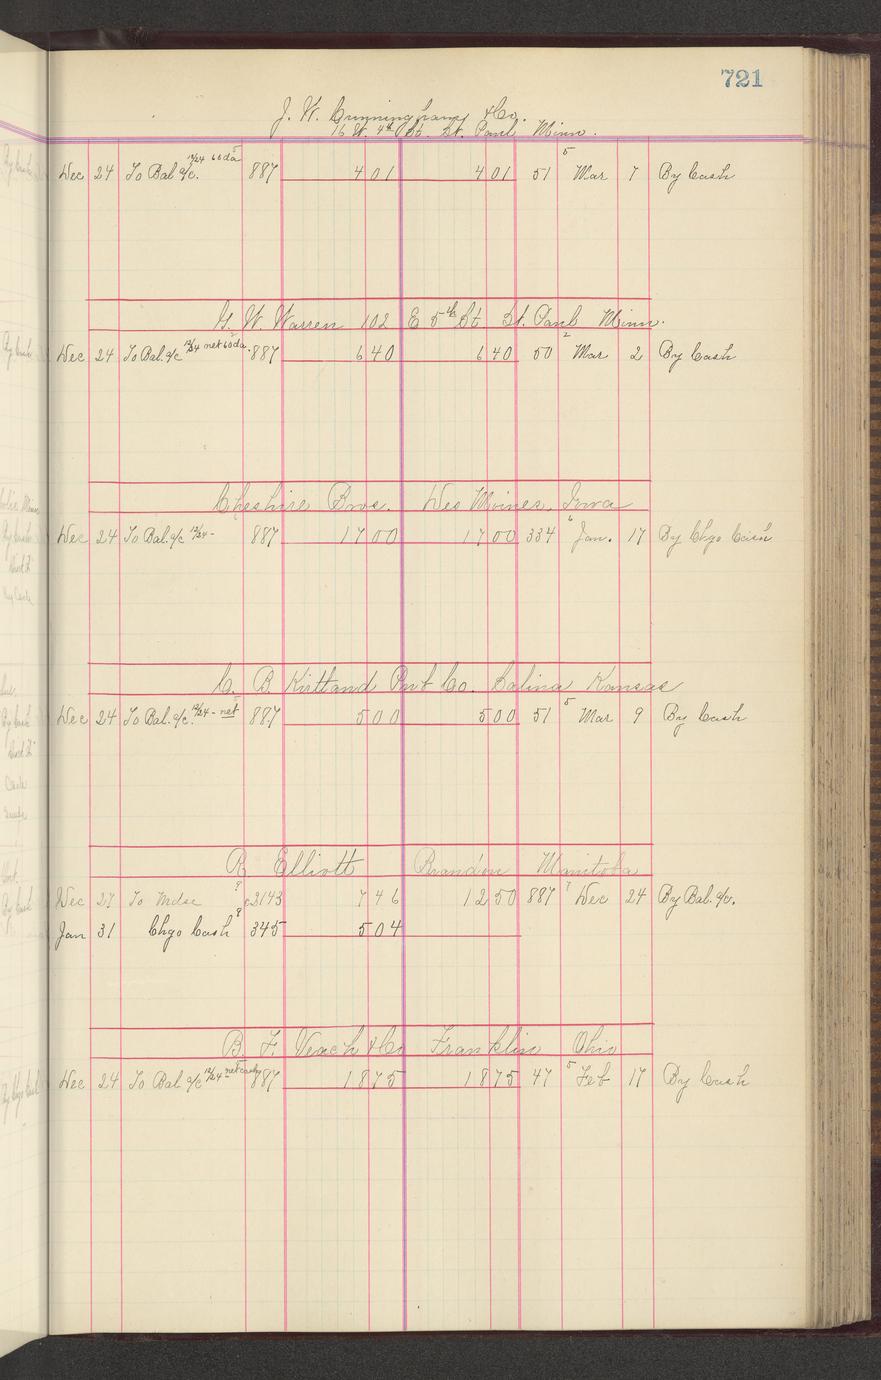 721
J. W. Cunningham & Co.
16 W. 4th St. St. Paul Minn.
Dec 24 To Bal. a/c. 12/24 60 da 887 401 401 51 5 Mar 7 By Cash
G. W. Warren 102 E 5th St St. Paul Minn.
Dec 24 To Bal. a/c 12/24 net 60 da. 887 640 640 50 2 Mar 2 By Cash
Cheshire Bros. Des Moines, Iowa
Dec 24 To Bal. a/c 12/24 - 887 1700 1700 334 6 Jan. 17 By Chgo Cash
C. B. Kirtland Co. Salina Kansas
Dec 24 To Bal. a/c. 12/24 - net 887 500 500 51 5 Mar 9 By Cash
R Elliott Brandon Manitoba
Dec 27 To Mdse 2143 746 1250 887 7 Dec 24 By Bal. a/c.
Jan 31 Chgo Cash 345 504
B. F. Veach & Co Franklin Ohio
Dec 24 To Bal a/c 12/24 - net cash 887 1875 1875 47 5 Feb 17 By Cash